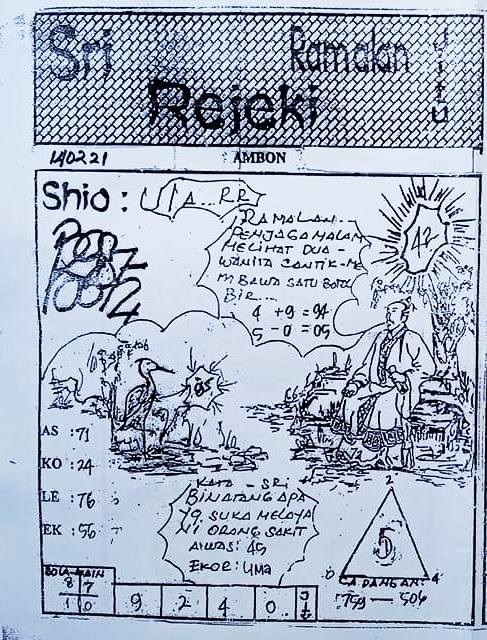 Sri
Ramalan
Jitu
Rejeki
AMBON
Shio : ULA..RR
RAMALAN..
PENJAGA MALAM
MELIHAT DUA -
WANITA CANTIK-ME
MBAWA SATU BOTOL
BIR...
4 + 9 = 94
5 - 0 = 05
42
05
AS : 71
KO : 24
LE : 76
EK : 56
KATA - SRI
BINATANG APA
YG SUKA MELAYA
NI ORANG SAKIT
AWAS: 45
EKOR: LIMA
2
5
0
4
CADANGAN
759 — 504
BOLA MAIN
8 7
1 0
9 2 4 0